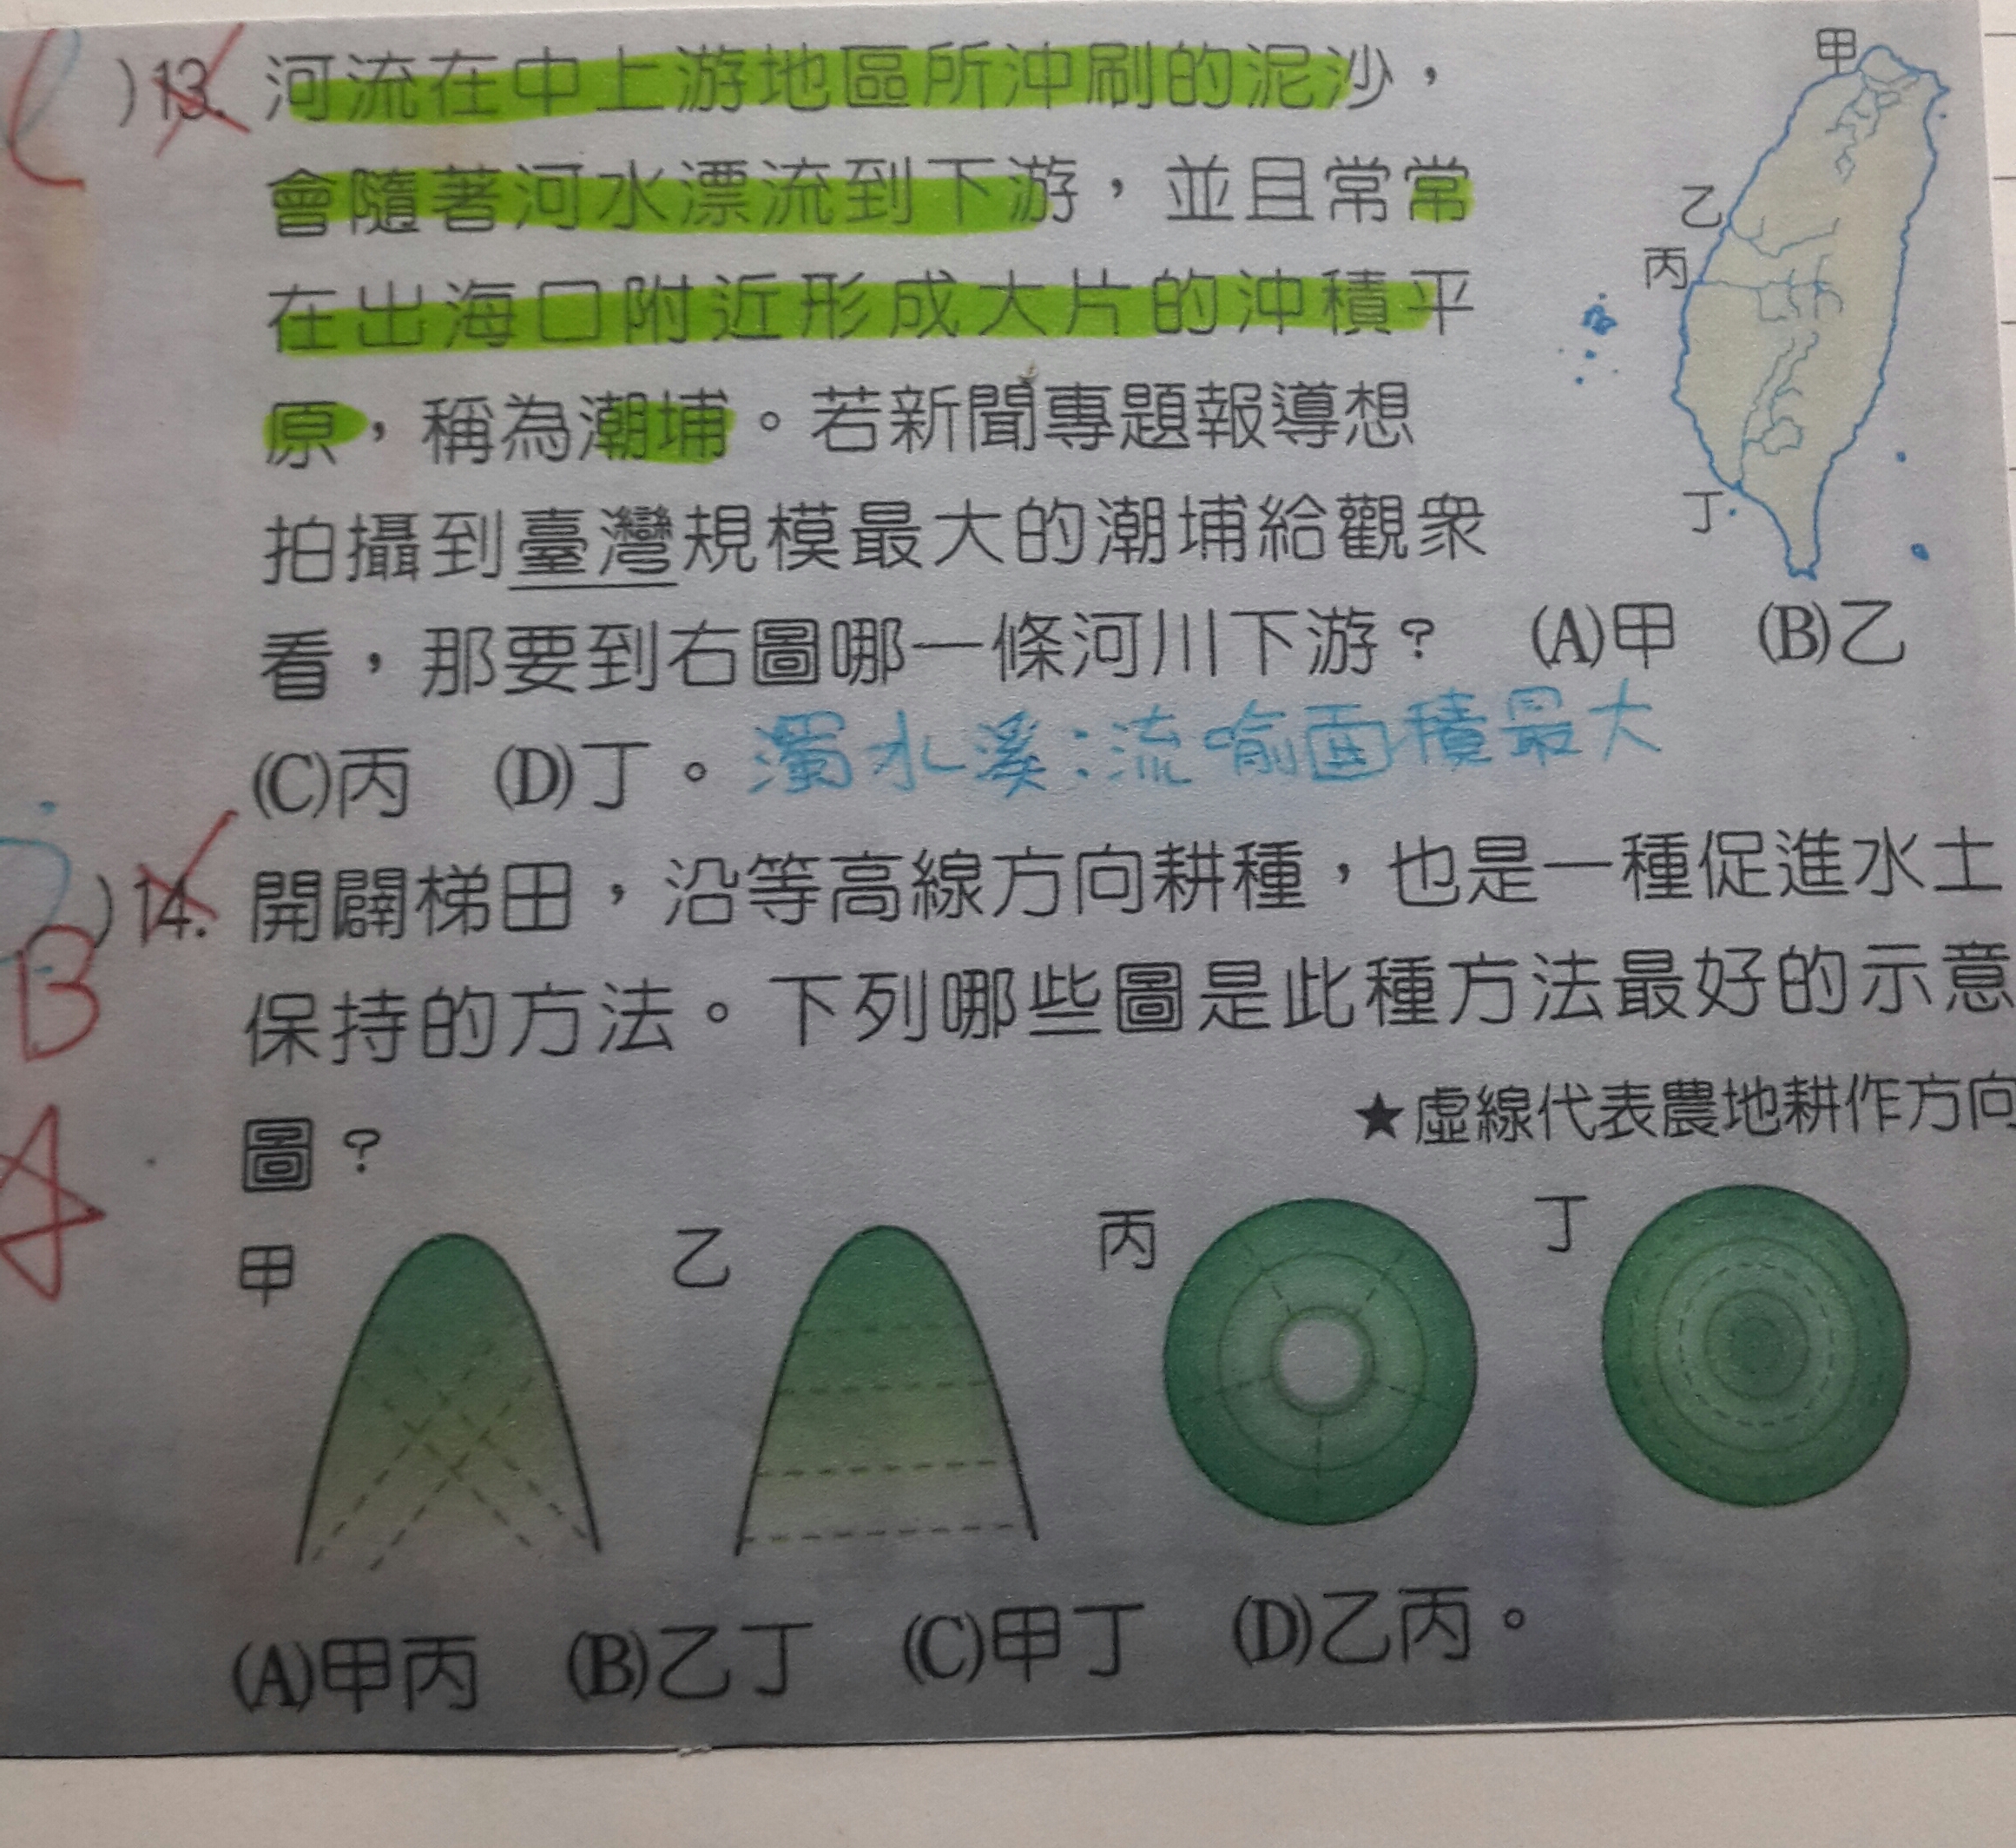 )13. 河流在中上游地區所沖刷的泥沙，
甲
會隨著河水漂流到下游，並且常常
乙
在出海口附近形成大片的沖積平
丙
原，稱為潮埔。若新聞專題報導想
拍攝到臺灣規模最大的潮埔給觀眾
丁
看，那要到右圖哪一條河川下游？ (A)甲 (B)乙
(C)丙 (D)丁。濁水溪：流喻面積最大
)14. 開闢梯田，沿等高線方向耕種，也是一種促進水土
B
保持的方法。下列哪些圖是此種方法最好的示意
圖？
★虛線代表農地耕作方向
甲 乙 丙 丁
(A)甲丙 (B)乙丁 (C)甲丁 (D)乙丙。